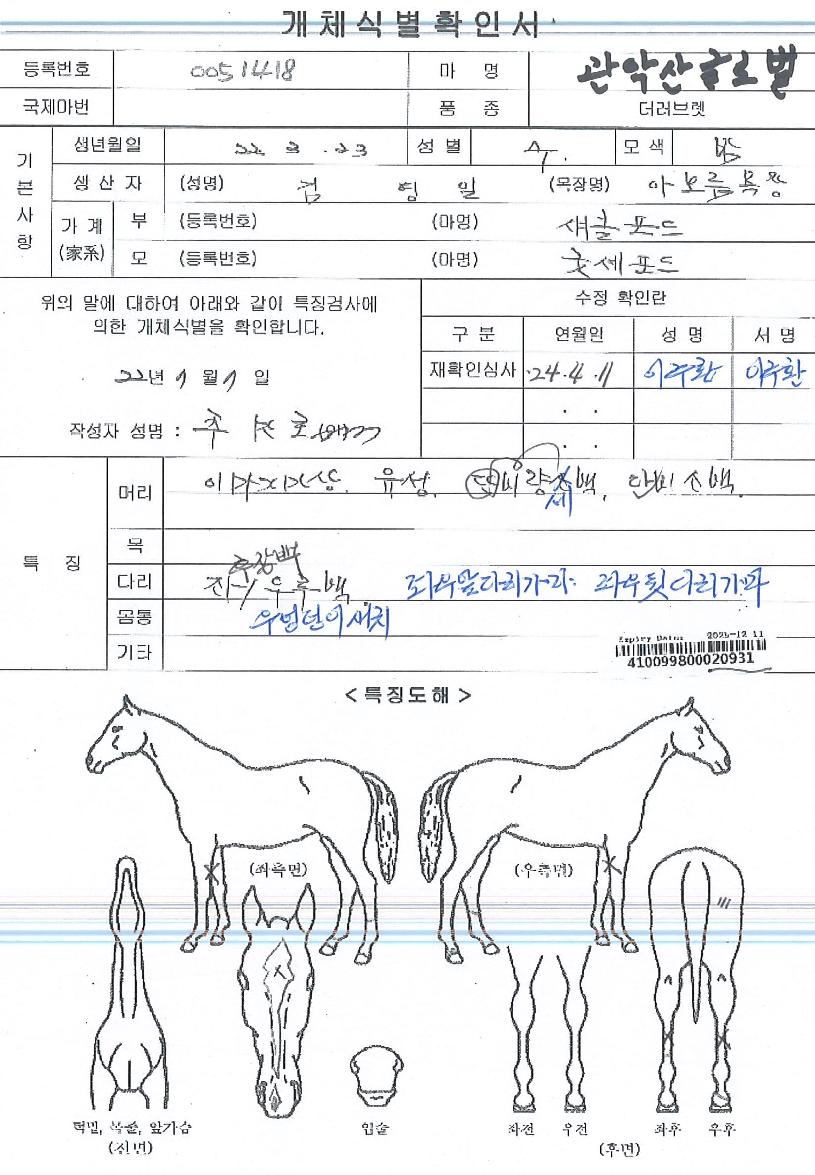 개체식별확인서
등록번호 0051418 마 명 관악산글로벌
국제마번 품 종 더러브렛
기본사항
생년월일 22 3 . 23 성 별 수. 모 색 밤
생 산 자 (성명) 일 (목장명) 아 보름 목장
가 계 (家系) 부 (등록번호) (마명) 새클포드
모 (등록번호) (마명) 포드
위의 말에 대하여 아래와 같이 특징검사에
의한 개체식별을 확인합니다.
22년 월 일
작성자 성명 :
수정 확인란
구 분 연월일 성 명 서 명
재확인심사 24.4.11
. .
. .
특 징
머리 이마지상. 유성. 단비 백.
목
다리 좌우앞다리가마. 좌우뒷다리가마
몸통 우엉덩이새치
기타
Expiry Date: 2025-12-11
410099800020931
<특징도해>
(좌측면) (우측면)
턱밑, 목줄, 앞가슴
(전면)
입술
좌전 우전 좌후 우후
(후면)